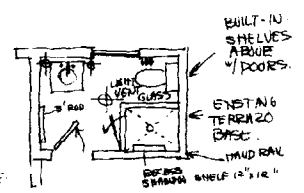 BUILT-IN
SHELVES
ABOVE
W/DOORS.
LIGHT
VENT
GLASS
3' ROD
EXISTING
TERRAZO
BASE.
HAND RAIL
RECESS
SHAMPOO SHELF 12" x 12"